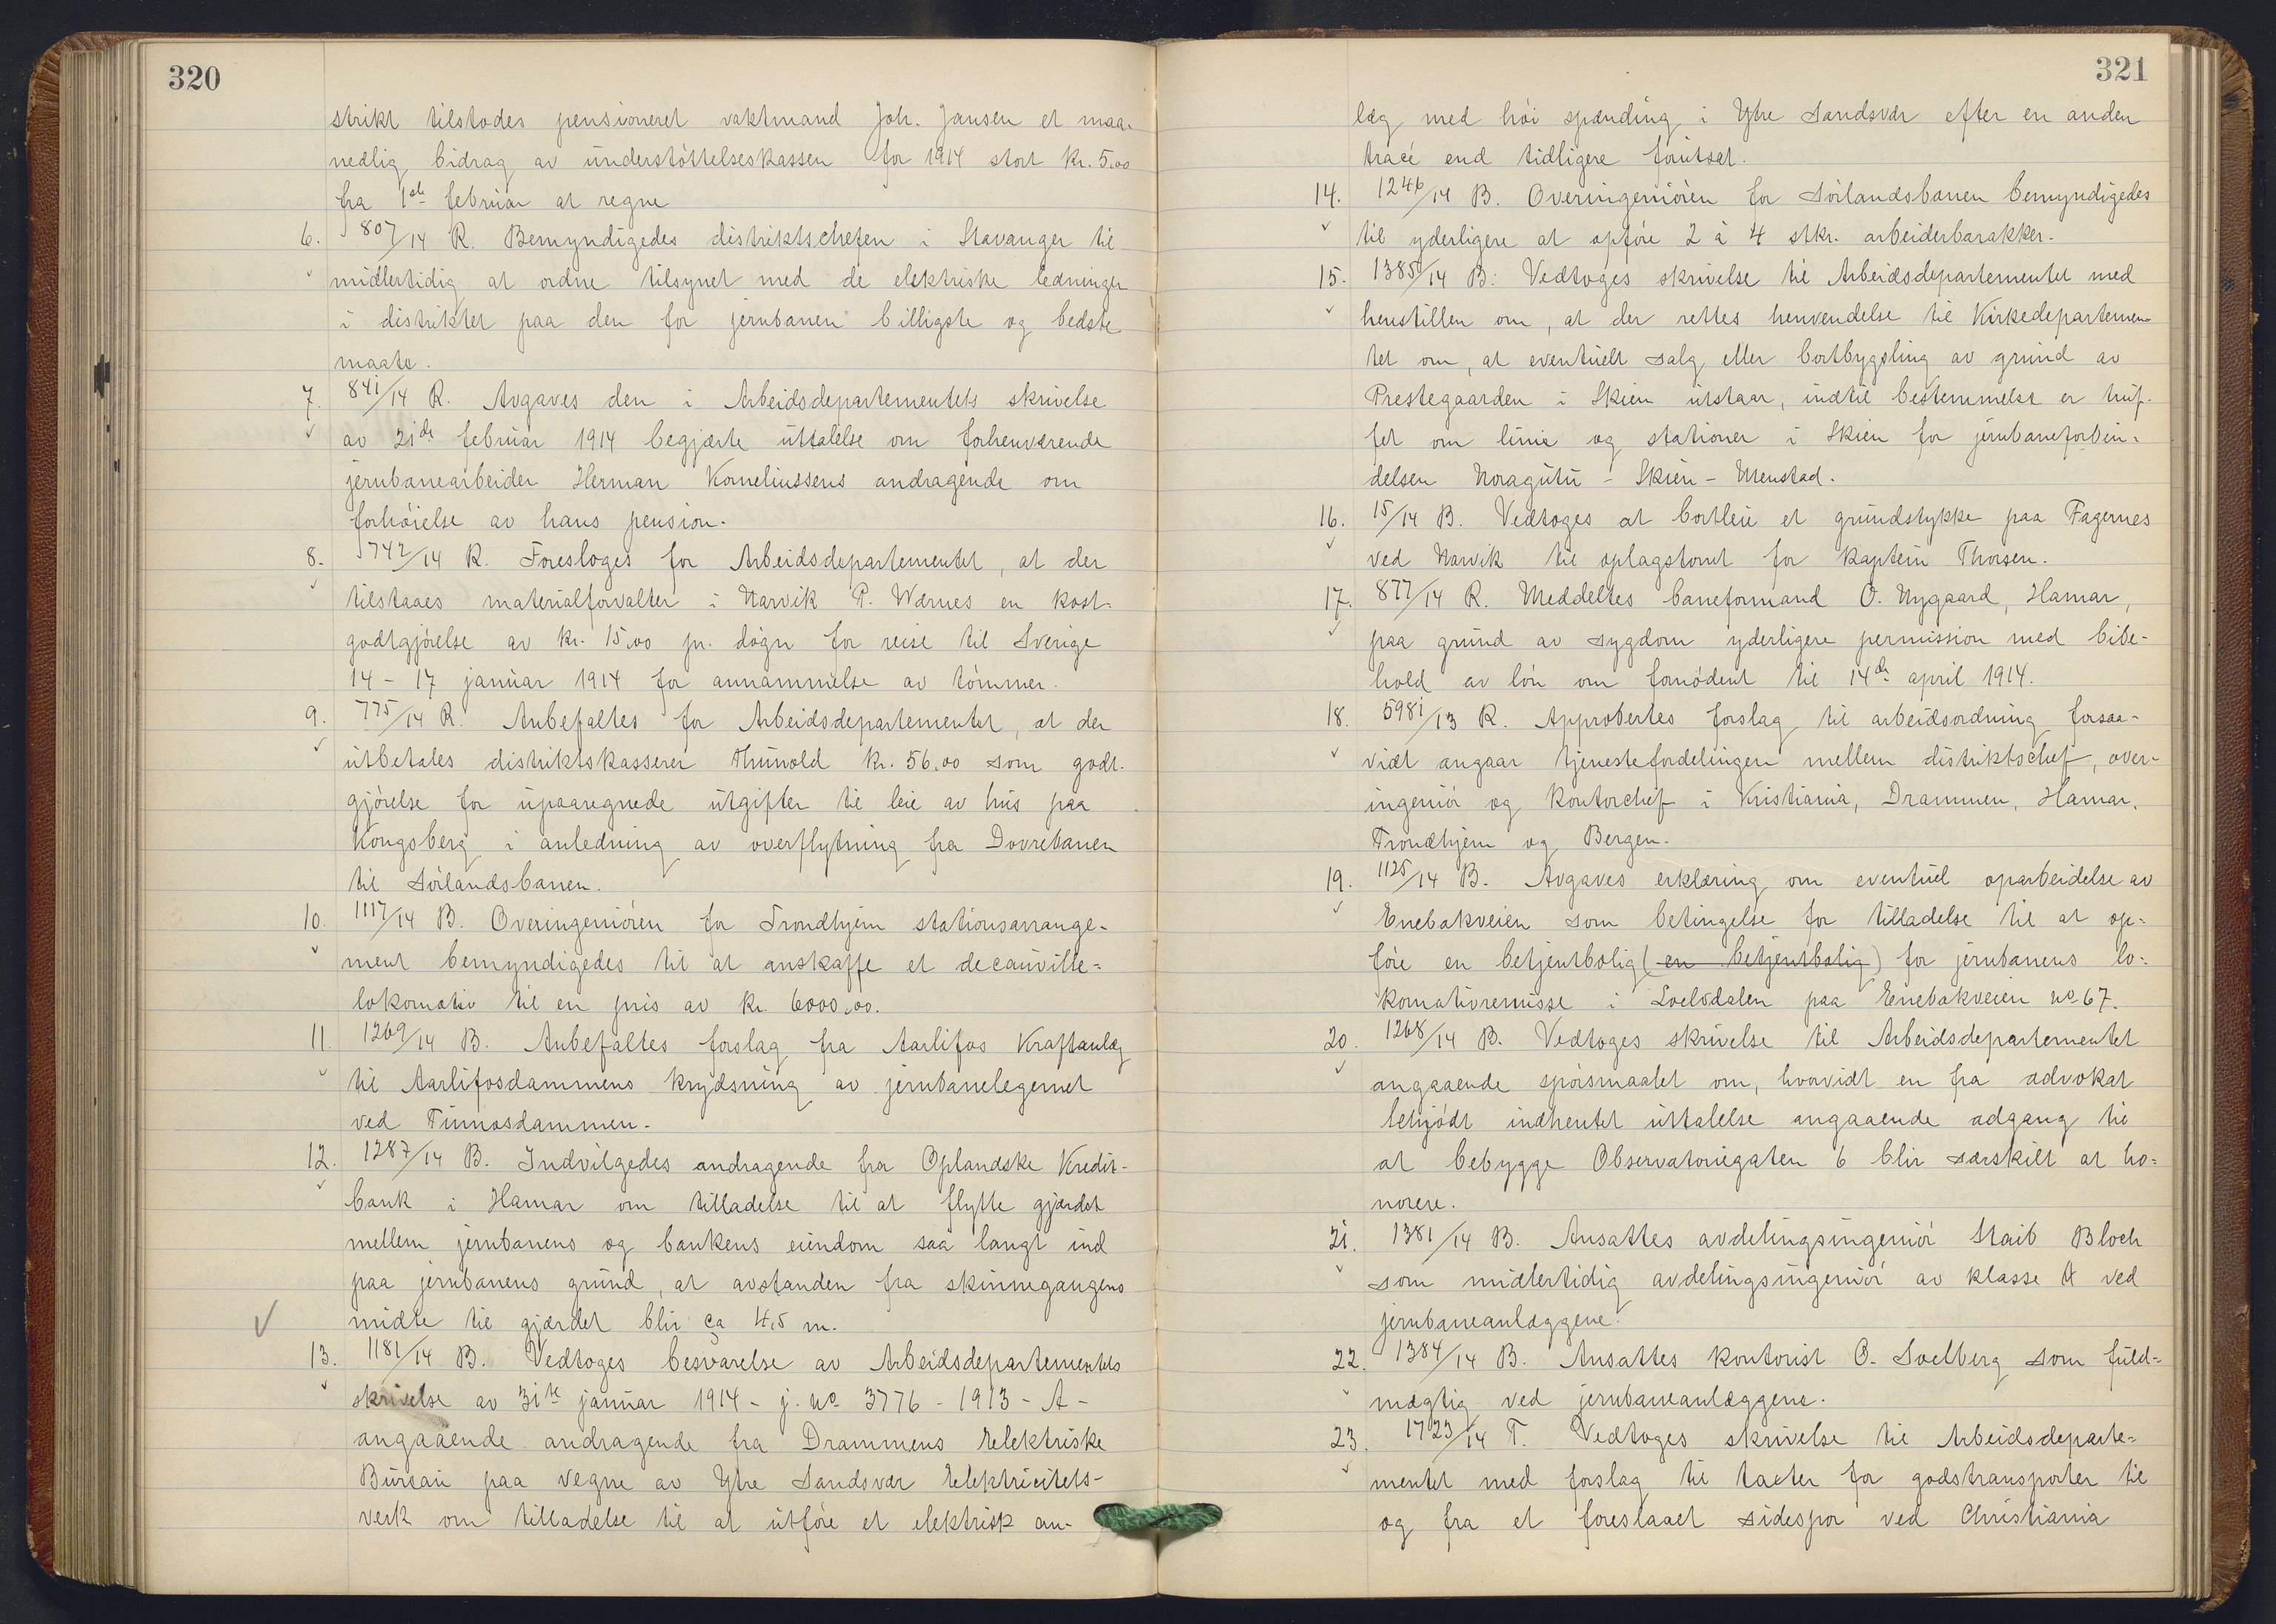 320
strikt tilstodes pensioneret vaktmand Joh. Jansen et maa-
nedlig bidrag av understöttelseskassen for 1914 stort kr. 5.00
fra 1ste februar at regne
6. 807/14 R. Bemyndigedes distriktschefen i Stavanger til
midlertidig at ordne tilsynet med de elektriske ledninger
i distriktet paa den for jernbanen billigste og bedste
maate.
7. 841/14 R. Avgaves den i Arbeidsdepartementets skrivelse
av 21de februar 1914 begjærte uttalelse om forhenværende
jernbanearbeider Herman Korneliussens andragende om
forhöielse av hans pension.
8. 742/14 R. Foresloges for Arbeidsdepartementet, at der
tilstaaes materialforvalter i Narvik P. Wærnes en kost-
godtgjörelse av kr. 15.00 pr. dögn for reise til Sverige
14 - 17 januar 1914 for annammelse av tömmer.
9. 775/14 R. Anbefaltes for Arbeidsdepartementet, at der
utbetales distriktskasserer Thunold kr. 56.00 som godt-
gjörelse for upaaregnede utgifter til leie av hus paa
Kongsberg i anledning av overflytning fra Dovrebanen
til Sörlandsbanen.
10. 1117/14 B. Overingeniören for Trondhjem stationsarrange-
ment bemyndigedes til at anskaffe et decauville-
lokomotiv til en pris av kr. 6000.00.
11. 1269/14 B. Anbefaltes forslag fra Aarlifos Kraftanlæg
til Aarlifosdammens krydsning av jernbanelegemet
ved Tinnosdammen.
12. 1287/14 B. Indvilgedes andragende fra Oplandske Kredit-
bank i Hamar om tilladelse til at flytte gjærdet
mellem jernbanens og bankens eiendom saa langt ind
paa jernbanens grund, at avstanden fra skinnegangens
midte til gjærdet blir ca 4,5 m.
13. 1181/14 B. Vedtoges besvarelse av Arbeidsdepartementets
skrivelse av 31te januar 1914 - j. no. 3776 - 1913 - A -
angaaende andragende fra Drammens Elektriske
Bureau paa vegne av Ytre Sandsvær Elektricitets-
verk om tilladelse til at utföre et elektrisk an-
321
læg med höi spænding i Ytre Sandsvær efter en anden
tracé end tidligere forutsat.
14. 1246/14 B. Overingeniören for Sörlandsbanen bemyndigedes
til yderligere at opföre 2 à 4 stkr. arbeiderbarakker.
15. 1385/14 B. Vedtoges skrivelse til Arbeidsdepartementet med
henstillen om, at der rettes henvendelse til Kirkedepartemen-
tet om, at eventuelt salg eller bortbygsling av grund av
Prestegaarden i Skien utstaar, indtil bestemmelse er truf-
fet om linie og stationer i Skien for jernbaneforbin-
delsen Noragutu - Skien - Menstad.
16. 15/14 B. Vedtoges at bortleie et grundstykke paa Fagernes
ved Narvik til oplagstomt for kaptein Thorsen.
17. 877/14 R. Meddeltes baneformand O. Nygaard, Hamar,
paa grund av sygdom yderligere permission med bibe-
hold av lön om fornödent til 14de april 1914.
18. 5981/13 R. Approbertes forslag til arbeidsordning forsaa-
vidt angaar tjenestefordelingen mellem distriktschef, over-
ingeniör og kontorchef i Kristiania, Drammen, Hamar,
Trondhjem og Bergen.
19. 1125/14 B. Avgaves erklæring om eventuel oparbeidelse av
Enebakveien som betingelse for tilladelse til at op-
före en betjentbolig (en betjentbolig) for jernbanens lo-
komotivremisse i Loelvdalen paa Enebakveien no 67.
20. 1268/14 B. Vedtoges skrivelse til Arbeidsdepartementet
angaaende spörsmaalet om, hvorvidt en fra advokat
Schjödt indhentet uttalelse angaaende adgang til
at bebygge Observatoriegaten 6 blir særskilt at ho-
norere.
21. 1381/14 B. Ansattes avdelingsingeniör Staib Bloch
som midlertidig avdelingsingeniör av klasse A ved
jernbaneanlæggene.
22. 1384/14 B. Ansattes kontorist O. Soelberg som fuld-
mægtig ved jernbaneanlæggene.
23. 1723/14 T. Vedtoges skrivelse til Arbeidsdeparte-
mentet med forslag til takster for godstransporter til
og fra et foreslaaet sidespor ved Christiania